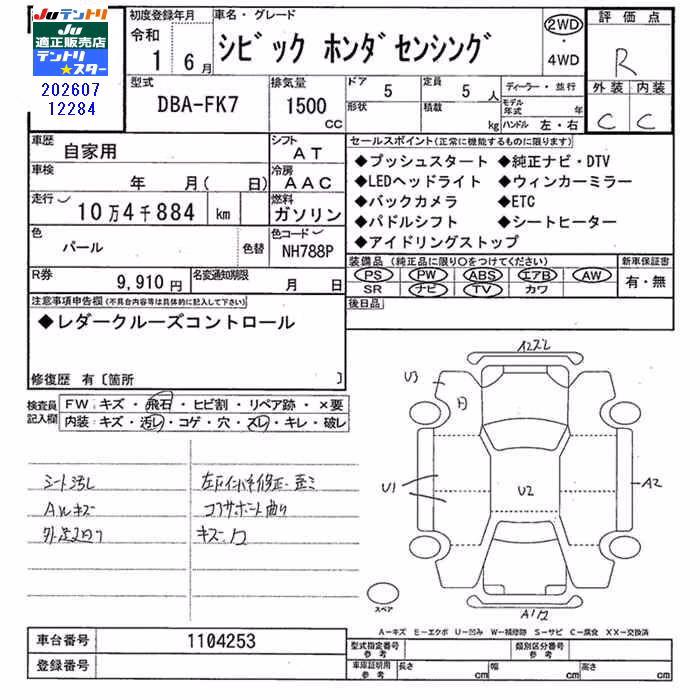 Juテントリ
Ju
適正販売店
テントリ
★スター
202607
12284
初度登録年月
令和
1 6月
車名・グレード
シビック ホンダセンシング
2WD
・
4WD
評価点
R
外装 内装
C C
型式
DBA-FK7
排気量
1500
CC
ドア
5
定員
5 人
形状
積載
kg
ディーラー・並行
モデル年式 年
ハンドル 左・右
車歴
自家用
シフト
AT
車検
年 月( 日)
冷房
AAC
走行
10万4千884 km
燃料
ガソリン
色
パール
色替
色コード
NH788P
R券
9,910円
名変通知期限
月 日
セールスポイント(正常に機能するものに限ります)
◆プッシュスタート ◆純正ナビ・DTV
◆LEDヘッドライト ◆ウィンカーミラー
◆バックカメラ ◆ETC
◆パドルシフト ◆シートヒーター
◆アイドリングストップ
装備品(純正品に限り○をつけてください)
PS PW ABS エアB AW
SR ナビ TV カワ
新車保証書
有・無
後日品
注意事項申告欄(不具合内容等は具体的に記入して下さい)
◆レダークルーズコントロール
修復歴 有〔箇所 〕
検査員
記入欄
FW:キズ・飛石・ヒビ割・リペア跡・×要
内装:キズ・汚レ・コゲ・穴・スレ・キレ・破レ
シート汚レ
AWキズ
コアサポート曲り
キズ・凹
U3
A2
U1
U2
A2
スペア
A-キズ E-エクボ U-凹み W-補修跡 S-サビ C-腐食 XX-交換済
車台番号
1104253
登録番号
型式指定番号
参考
類別区分番号
参考
車庫証明用
参考
長さ cm
幅 cm
高さ cm